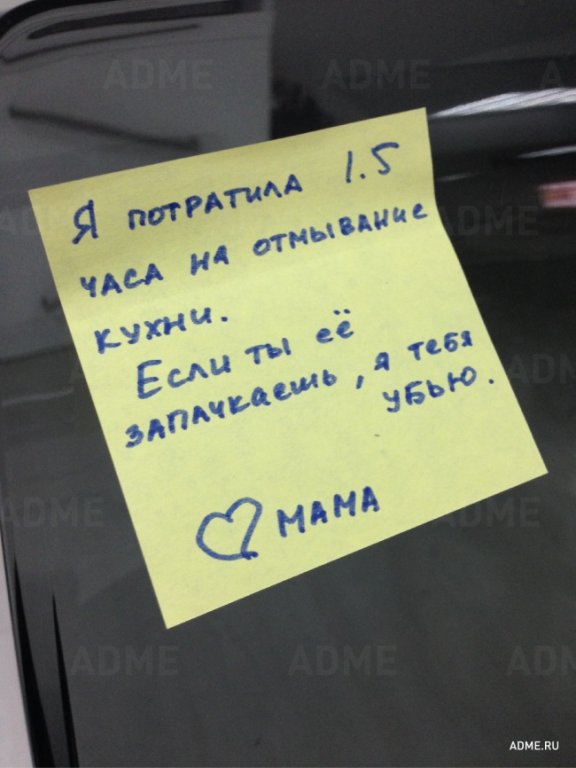 ADME ADME A
Я ПОТРАТИЛА 1.5
ЧАСА НА ОТМЫВАНИЕ
КУХНИ.
ЕСЛИ ТЫ ЕЁ
ЗАПАЧКАЕШЬ, Я ТЕБЯ
УБЬЮ.
♡ МАМА
ADME
ADME
ADME
ADME
ADME ADME ADME
ADME.RU